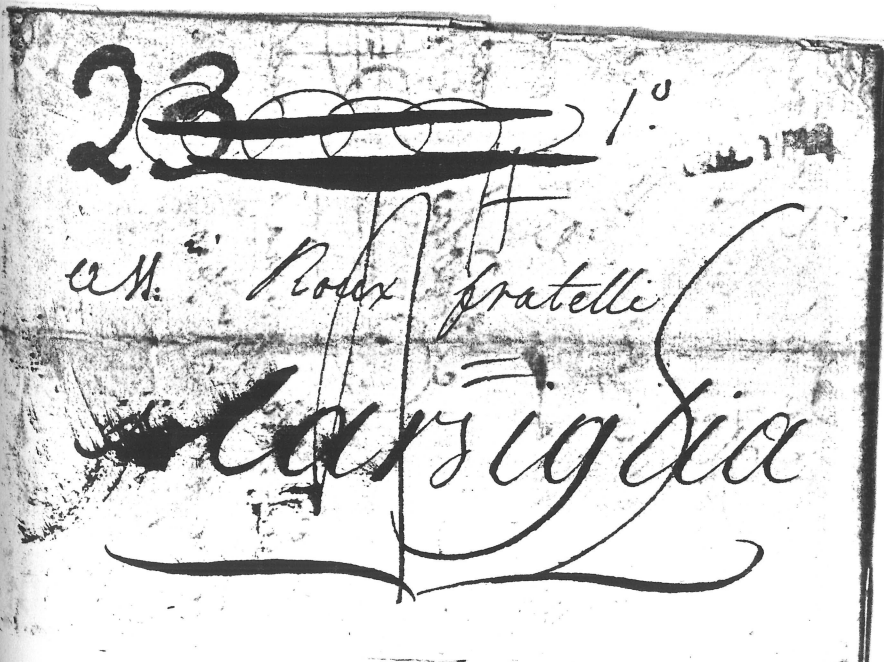 23 1.º
Roux fratelli
Marsiglia